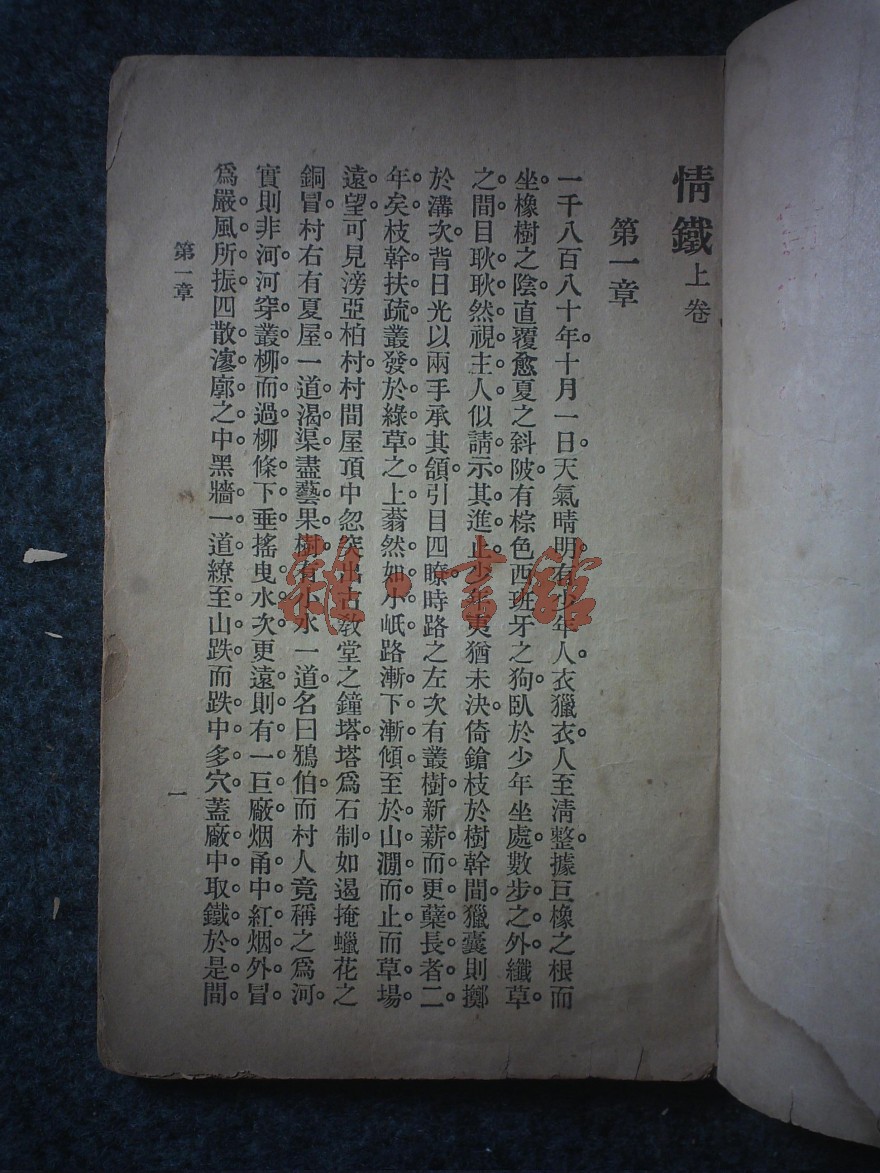 情鐵上卷
第一章
一千八百八十年。十月一日。天氣晴明。有少年人。衣獵衣。人至清整。據巨橡之根而
坐。橡樹之陰。直覆愈夏之斜陂。有棕色西班牙之狗。臥於少年坐處數步之外。纖草
之間。目耿耿然視主人。似請示其進止。少年夷猶未決。倚鎗枝於樹幹間。獵囊則擲
於溝次。背日光以兩手承其頷。引目四瞭。時路之左次有叢樹。新薪而更蘖。長者二
年矣。枝幹扶疏。叢發於綠草之上。蓊然如小岷。路漸下漸傾。至於山澗而止。而草場
遠。望可見滂亞柏村。村間屋頂中。忽突出古教堂之鐘塔。塔為石制。如遏掩蠟花之
銅冒。村右有夏屋。一道渴渠。盡藝果樹。有小水一道。名曰鴉伯。而村人竟稱之為河。
實則非河。河穿叢柳而過。柳條下垂。搖曳水次。更遠則有一巨廠。烟甬中紅烟外冒。
為嚴風所振。四散瀽廓之中。黑牆一道。繚至山跌。而跌中多穴。蓋廠中取鐵於是間。
第一章
一
雜·書館